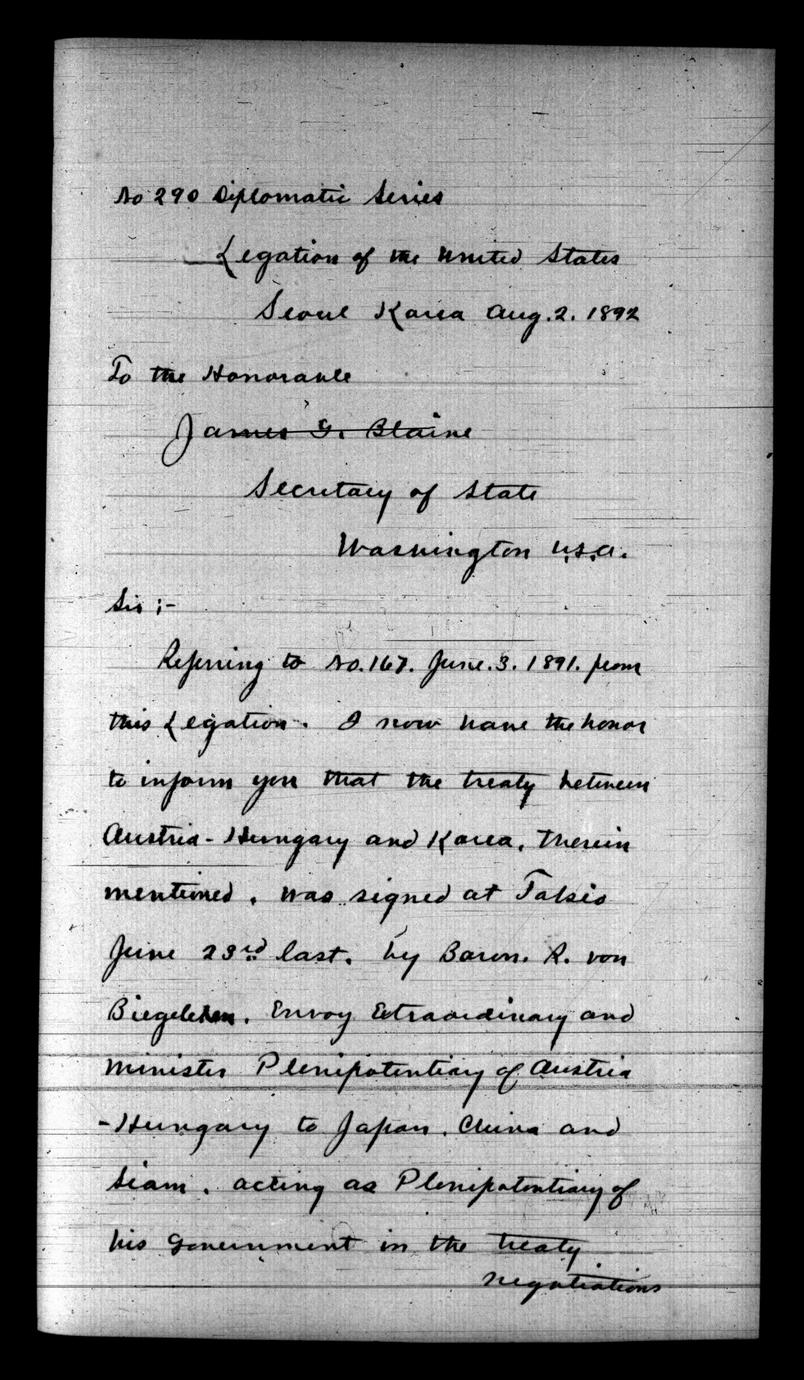 No 290 Diplomatic Series
Legation of the United States
Seoul Korea Aug. 2. 1892
To the Honorable
James G. Blaine
Secretary of State
Washington U.S.A.
Sir ;-
Referring to No. 167. June. 3. 1891. from
this Legation. I now have the honor
to inform you that the treaty between
Austria-Hungary and Korea, therein
mentioned, was signed at Tokio
June 23rd last, by Baron. R. von
Biegeleben, Envoy Extraordinary and
Minister Plenipotentiary of Austria
-Hungary to Japan, China and
Siam, acting as Plenipotentiary of
his Government in the treaty
negotiations